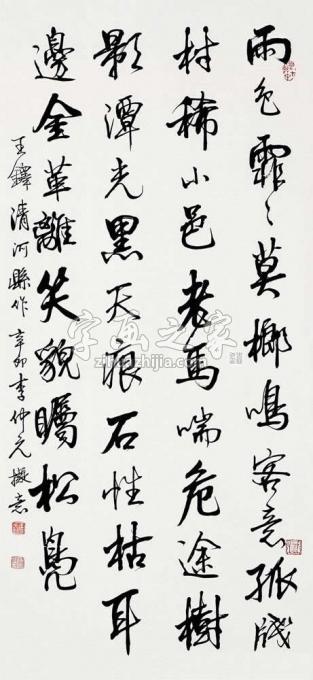 雨色霏〻莫榔鳴客意孤
村稀小邑老馬喘危途樹
影潭光黑天痕石性枯耳
邊金革離笑貌矚松鳧
王鐸清河縣作 辛卯李仲元意
字画之家
zihuazhijia.com